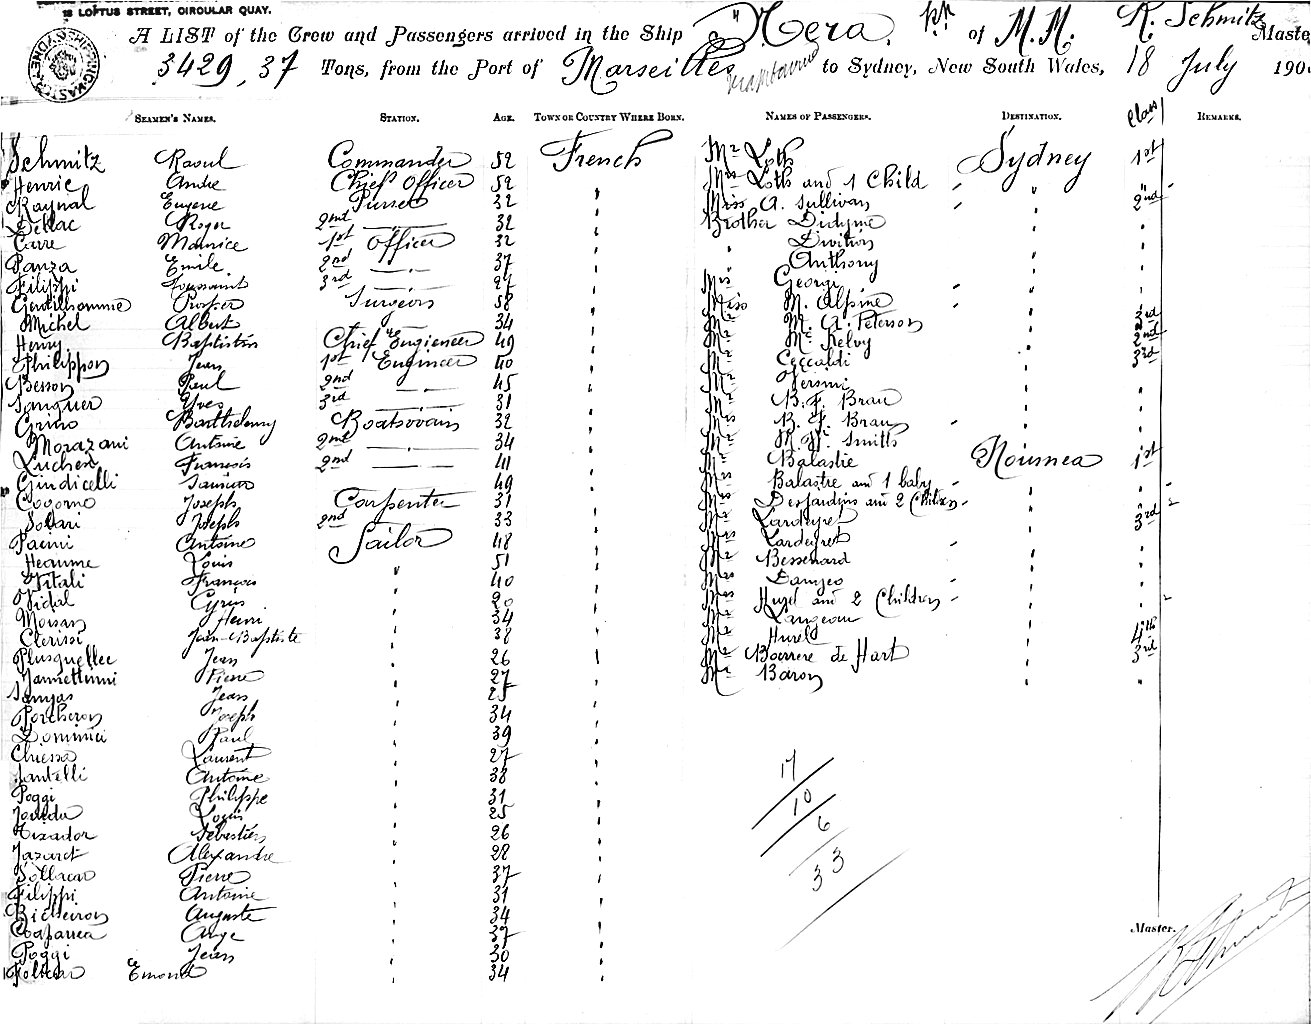 18 LOFTUS STREET, CIRCULAR QUAY.
A LIST of the Crew and Passengers arrived in the Ship "Nera" of M.M. R. Schmitz Master
3429,37 Tons, from the Port of Marseilles to Sydney, New South Wales, 18 July 190
SEAMEN'S NAMES. STATION. AGE. TOWN OR COUNTRY WHERE BORN. NAMES OF PASSENGERS. DESTINATION. Class REMARKS.
Schmitz Raoul Commander 52 French Mr Loth Sydney 1st
Henric Andre Chief Officer 52 " Mrs Loth and 1 Child " "
Raynal Eugene Purser 32 " Miss A. Sullivan " 2nd
Dellac Roger 2nd —"— 32 " Brother Didyme " "
Carre Maurice 1st Officer 32 " Divitius " "
Panza Emile 2nd —"— 37 " " Anthony " "
Filippi Toussaint 3rd —"— 27 " Mrs Georgi " "
Gentilhomme Prosper Surgeon 58 " Miss M. Alpine " "
Michel Albert 34 " Mr M. A. Peterson " 3rd
Henry Baptistin Chief Engineer 49 " Mr Mc Kelvy " 2nd
Philippon Jean 1st Engineer 40 " Mr Ceccaldi " 3rd
Besson Paul 2nd —"— 45 " Mr "
Yves 3rd —"— 31 " Mr B. F. Brau " "
Barthelemy Boatswain 32 " Mrs B. F. Brau " "
Morazani Antoine 2nd —"— 34 " Mr M. W. Smith " "
Francois 2nd —"— 41 " Mr Balastre Noumea 1st
Giudicelli 49 " Mrs Balastre and 1 baby " "
Joseph Carpenter 31 " Mrs Desjardins and 2 Children " "
Solari Joseph 2nd —"— 33 " Mr Lardeyret " 3rd
Pacini Antoine Sailor 48 " Mrs Lardeyret " "
Heaume Louis " 51 " Mr Bessenard " "
Vitali Francois " 40 " Mrs " "
Vidal Cyrus " 20 " Mrs Hurel and 2 Children " "
Moisan Henri " 34 " " "
Clerissi Jean-Baptiste " 38 " Mr Hurel " 4th
Plusquellec Jean " 26 " Mr Barrere de Hart " 3rd
Pierre " 27 " Mr Baron " "
Jean " 25 "
Porcheron Joseph " 34 "
Dominici Paul " 39 "
Chiessa Laurent " 27 "
Santelli Antoine " 38 "
Poggi Philippe " 31 "
Louis " 25 "
Sebastien " 26 "
Alexandre " 28 "
Pierre " 37 "
Filippi Antoine " 31 "
Auguste " 34 "
Ange " 37 "
Poggi Jean " 30 "
Emond " 34 "
17
10
6
33
Master. R. Schmitz